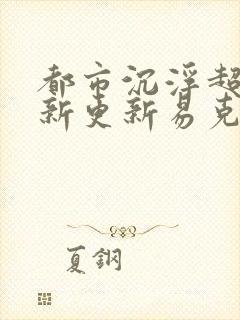 都市沉浮超
新更新易克
夏鋼